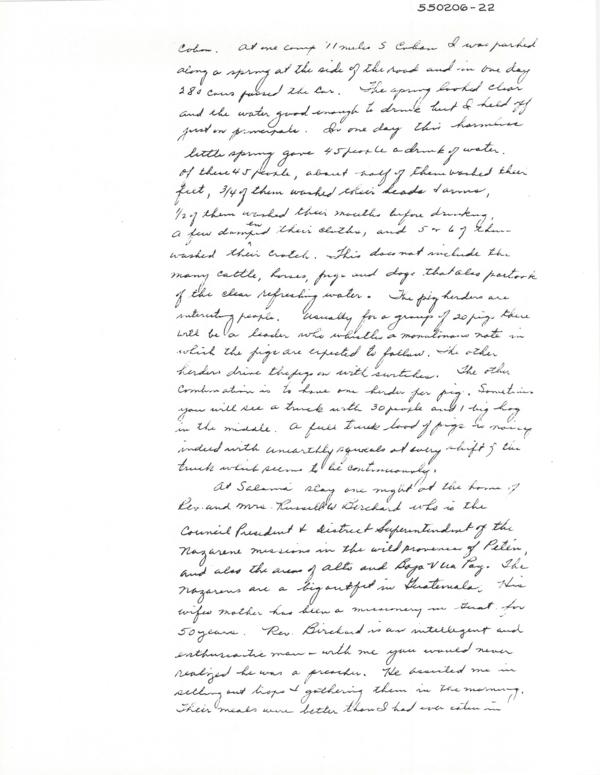 550206-22
Coban. At one camp 11 miles S Coban I was parked
along a spring at the side of the road and in one day
280 cars passed the car. The spring looked clear
and the water good enough to drink but I held off
just on principale. In one day this harmless
little spring gave 45 people a drink of water.
Of these 45 people, about half of them washed their
feet, 3/4 of them washed their heads & arms,
1/2 of them washed their mouths before drinking,
a few dampened their cloths, and 5 or 6 of them
washed their crotch. This does not include the
many cattle, horses, pigs and dogs that also partook
of the clear refreshing water. The pig herders are
interesting people. Usually for a group of 20 pigs there
will be a leader who whistles a monotonous note in
which the pigs are expected to follow. The other
herders drive the pigs on with switches. The other
combination is to have one herder per pig. Sometimes
you will see a truck with 30 people and 1 big hog
in the middle. A full truck load of pigs is noisy
indeed with unearthly squeals at every shift of the
truck which seems to be continuously.
At Salama stay one night at the home of
Rev. and Mrs. Russell W Birchard who is the
Council President & District Superintendent of the
Nazarene missions in the wild province of Petén,
and also the areas of Alto and Baja Vera Paz. The
Nazarens are a big outfit in Guatemala. His
wifes mother has been a missionery in Guat for
50 years. Rev. Birchard is an intellegent and
enthusiastic man – with me you would never
realized he was a preacher. He assisted me in
setting out traps & gathering them in the morning.
Their meals were better than I had ever eaten in